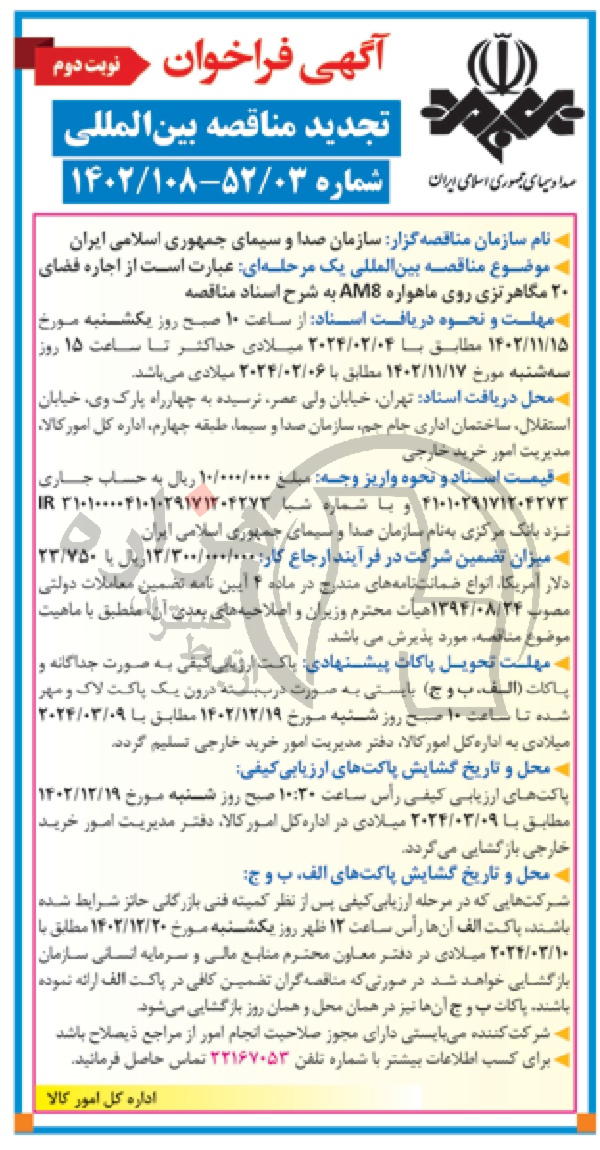 آگهی فراخوان
نوبت دوم
تجدید مناقصه بین‌المللی
شماره ۵۲/۰۳-۱۴۰۲/۱۰۸
صدا و سیمای جمهوری اسلامی ایران
نام سازمان مناقصه‌گزار: سازمان صدا و سیمای جمهوری اسلامی ایران
موضوع مناقصه بین‌المللی یک مرحله‌ای: عبارت است از اجاره فضای
۲۰ مگاهرتزی روی ماهواره AM8 به شرح اسناد مناقصه
مهلت و نحوه دریافت اسناد: از ساعت ۱۰ صبح روز یکشنبه مورخ
۱۴۰۲/۱۱/۱۵ مطابق با ۲۰۲۴/۰۲/۰۴ میلادی حداکثر تا ساعت ۱۵ روز
سه‌شنبه مورخ ۱۴۰۲/۱۱/۱۷ مطابق با ۲۰۲۴/۰۲/۰۶ میلادی می‌باشد.
محل دریافت اسناد: تهران، خیابان ولی عصر، نرسیده به چهارراه پارک وی، خیابان
استقلال، ساختمان اداری جام جم، سازمان صدا و سیما، طبقه چهارم، اداره کل امور کالا،
مدیریت امور خرید خارجی
قیمت اسناد و نحوه واریز وجه: مبلغ ۱۰/۰۰۰/۰۰۰ ریال به حساب جاری
۴۱۰۱۰۲۹۱۷۱۲۰۴۲۷۳ و یا شماره شبا IR ۳۱۰۱۰۰۰۰۴۱۰۱۰۲۹۱۷۱۲۰۴۲۷۳
نزد بانک مرکزی به‌نام سازمان صدا و سیمای جمهوری اسلامی ایران
میزان تضمین شرکت در فرآیند ارجاع کار: ۱۳/۳۰۰/۰۰۰/۰۰۰ ریال یا ۲۳/۷۵۰
دلار آمریکا، انواع ضمانت‌نامه‌های مندرج در ماده ۴ آیین نامه تضمین معاملات دولتی
مصوب ۱۳۹۴/۰۸/۲۴ هیأت محترم وزیران و اصلاحیه‌های بعدی آن، منطبق با ماهیت
موضوع مناقصه، مورد پذیرش می باشد.
مهلت تحویل پاکات پیشنهادی: پاکت ارزیابی‌کیفی به صورت جداگانه و
پاکات (الف، ب و ج) بایستی به صورت دربسته درون یک پاکت لاک و مهر
شده تا ساعت ۱۰ صبح روز شنبه مورخ ۱۴۰۲/۱۲/۱۹ مطابق با ۲۰۲۴/۰۳/۰۹
میلادی به اداره‌کل امور کالا، دفتر مدیریت امور خرید خارجی تسلیم گردد.
محل و تاریخ گشایش پاکت‌های ارزیابی‌کیفی:
پاکت‌های ارزیابی کیفی رأس ساعت ۱۰:۳۰ صبح روز شنبه مورخ ۱۴۰۲/۱۲/۱۹
مطابق با ۲۰۲۴/۰۳/۰۹ میلادی در اداره‌کل امور کالا، دفتر مدیریت امور خرید
خارجی بازگشایی می‌گردد.
محل و تاریخ گشایش پاکت‌های الف، ب و ج:
شرکت‌هایی که در مرحله ارزیابی‌کیفی پس از نظر کمیته فنی بازرگانی حائز شرایط شده
باشند، پاکت الف آن‌ها رأس ساعت ۱۲ ظهر روز یکشنبه مورخ ۱۴۰۲/۱۲/۲۰ مطابق با
۲۰۲۴/۰۳/۱۰ میلادی در دفتر معاون محترم منابع مالی و سرمایه انسانی سازمان
بازگشایی خواهد شد. در صورتی‌که مناقصه‌گران تضمین کافی در پاکت الف ارائه نموده
باشند، پاکات ب و ج آن‌ها نیز در همان محل و همان روز بازگشایی می‌شود.
شرکت‌کننده می‌بایستی دارای مجوز صلاحیت انجام امور از مراجع ذیصلاح باشد
برای کسب اطلاعات بیشتر با شماره تلفن ۲۲۱۶۷۰۵۳ تماس حاصل فرمائید.
اداره کل امور کالا